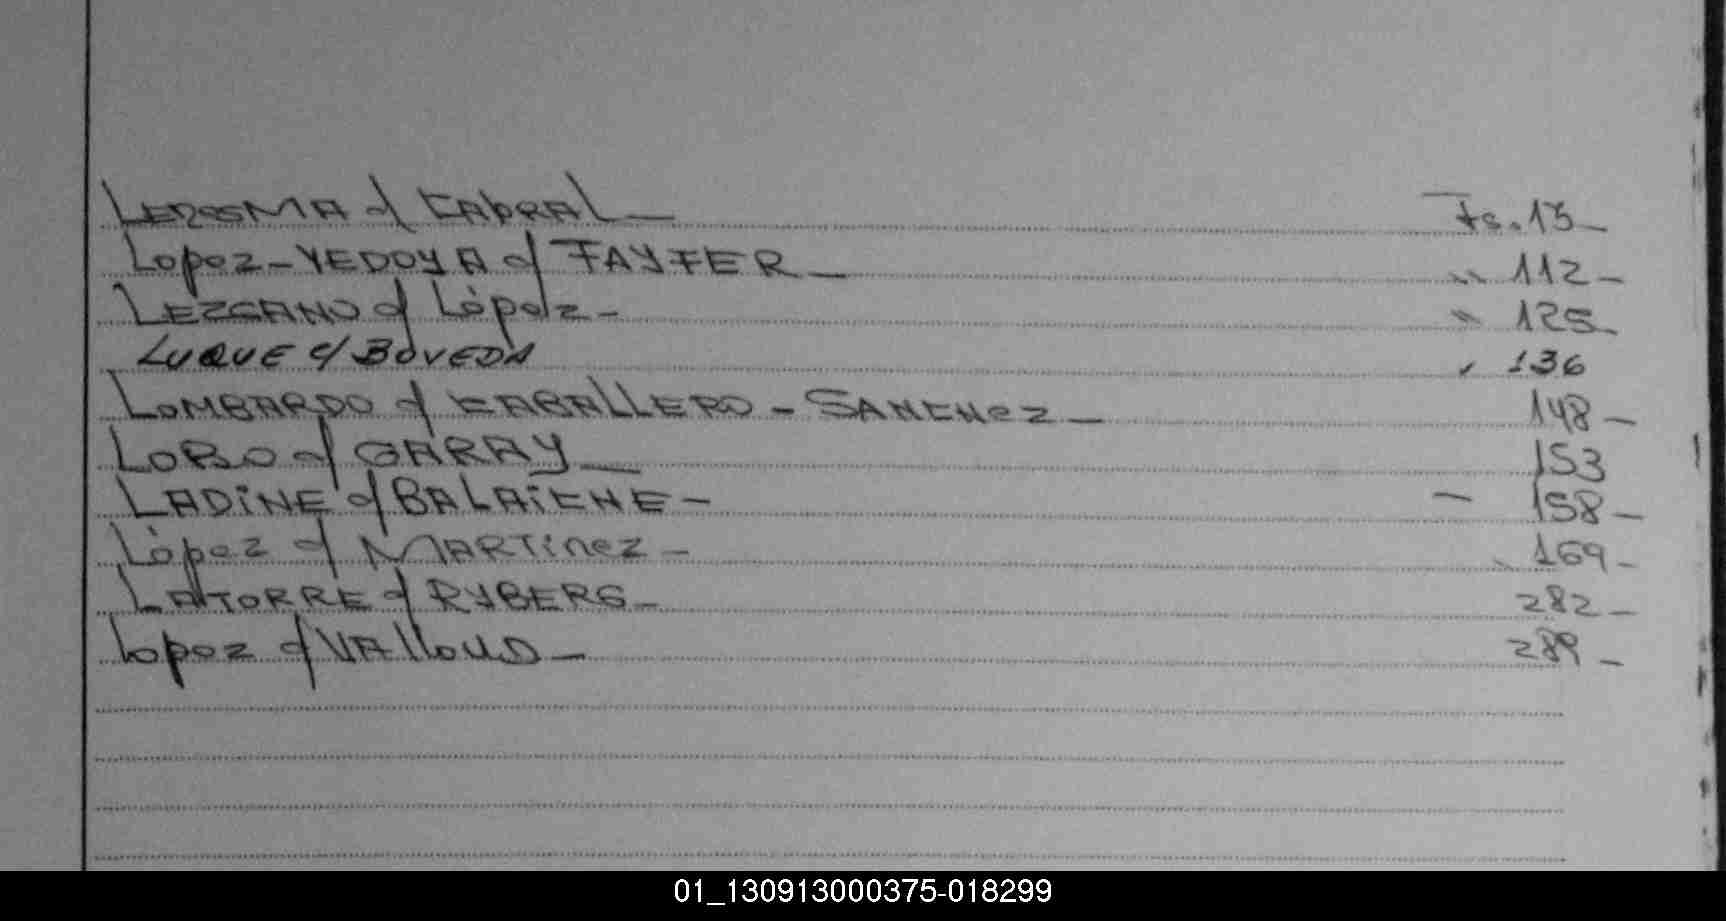 LEZOSMA c/ CABRAL — Fs. 13 -
Lopez - YEDOYA c/ FAYFER - " 112 -
LEZCANO c/ López - " 125 -
LUQUE c/ BOVEDA " 136
LOMBARDO c/ CABALLERO - SANCHEZ - 148 -
LOBO c/ GARAY — 153
LADINE c/ BALAICHE - — 158 -
López c/ MARTINEZ - 169 -
LATORRE c/ RYBERG - 282 -
Lopez c/ VALLOUD - 289 -
01_130913000375-018299